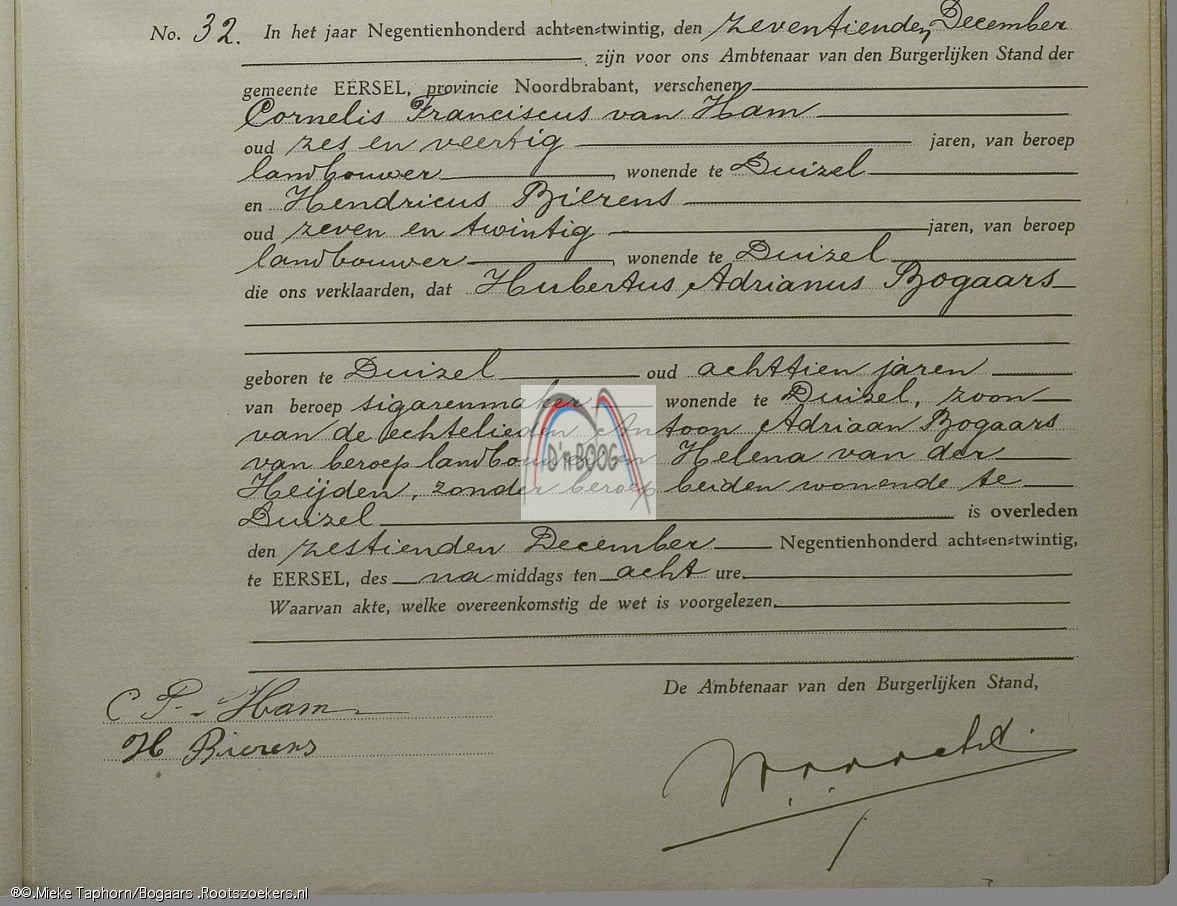 No. 32. In het jaar Negentienhonderd acht=en=twintig, den zeventienden December
zijn voor ons Ambtenaar van den Burgerlijken Stand der
gemeente EERSEL, provincie Noordbrabant, verschenen
Cornelis Franciscus van Ham
oud zes en veertig jaren, van beroep
landbouwer, wonende te Duizel
en Hendricus Bierens
oud zeven en twintig jaren, van beroep
landbouwer, wonende te Duizel
die ons verklaarden, dat Hubertus Adrianus Bogaars
geboren te Duizel oud achttien jaren
van beroep sigarenmaker wonende te Duizel, zoon
van de echtelieden Antoon Adriaan Bogaars
van beroep landbouwer en Helena van der
Heijden, zonder beroep beiden wonende te
D'n BOOG
Duizel is overleden
den zestienden December Negentienhonderd acht=en=twintig,
te EERSEL, des na middags ten acht ure.
Waarvan akte, welke overeenkomstig de wet is voorgelezen.
De Ambtenaar van den Burgerlijken Stand,
C F. v Ham
H Bierens
®©.Mieke Taphorn/Bogaars .Rootszoekers.nl